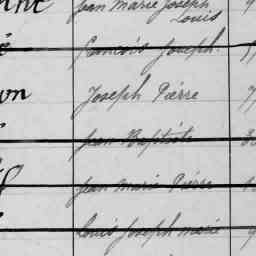 Jean Marie Joseph
Louis
François Joseph
Joseph Pierre
Jean Baptiste
Jean Marie Pierre
Louis Joseph Marie